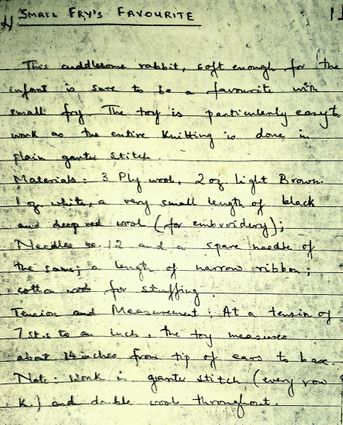 SMALL FRY'S FAVOURITE
This cuddlesome rabbit, soft enough for the
infant is sure to be a favourite with
small fry. The toy is particularly easy to
work as the entire knitting is done in
plain garter stitch.
Materials: 3 Ply wool, 2 oz light Brown.
1 oz white, a very small length of black
and deep red wool (for embroidery);
Needles no. 12 and a spare needle of
the same; a length of narrow ribbon;
cotton wool for stuffing.
Tension and Measurement: At a tension of
7 st.s to an inch, the toy measures
about inches from tip of ears to base.
Note: Work in garter stitch (every row
K.) and double wool throughout.